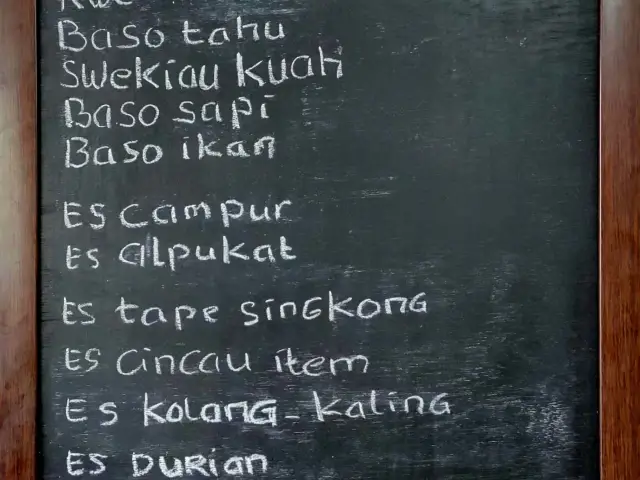 Baso tahu
Swekiau kuah
Baso sapi
Baso ikan
Es campur
Es alpukat
Es tape singkong
Es cincau item
Es kolang-kaling
Es Durian